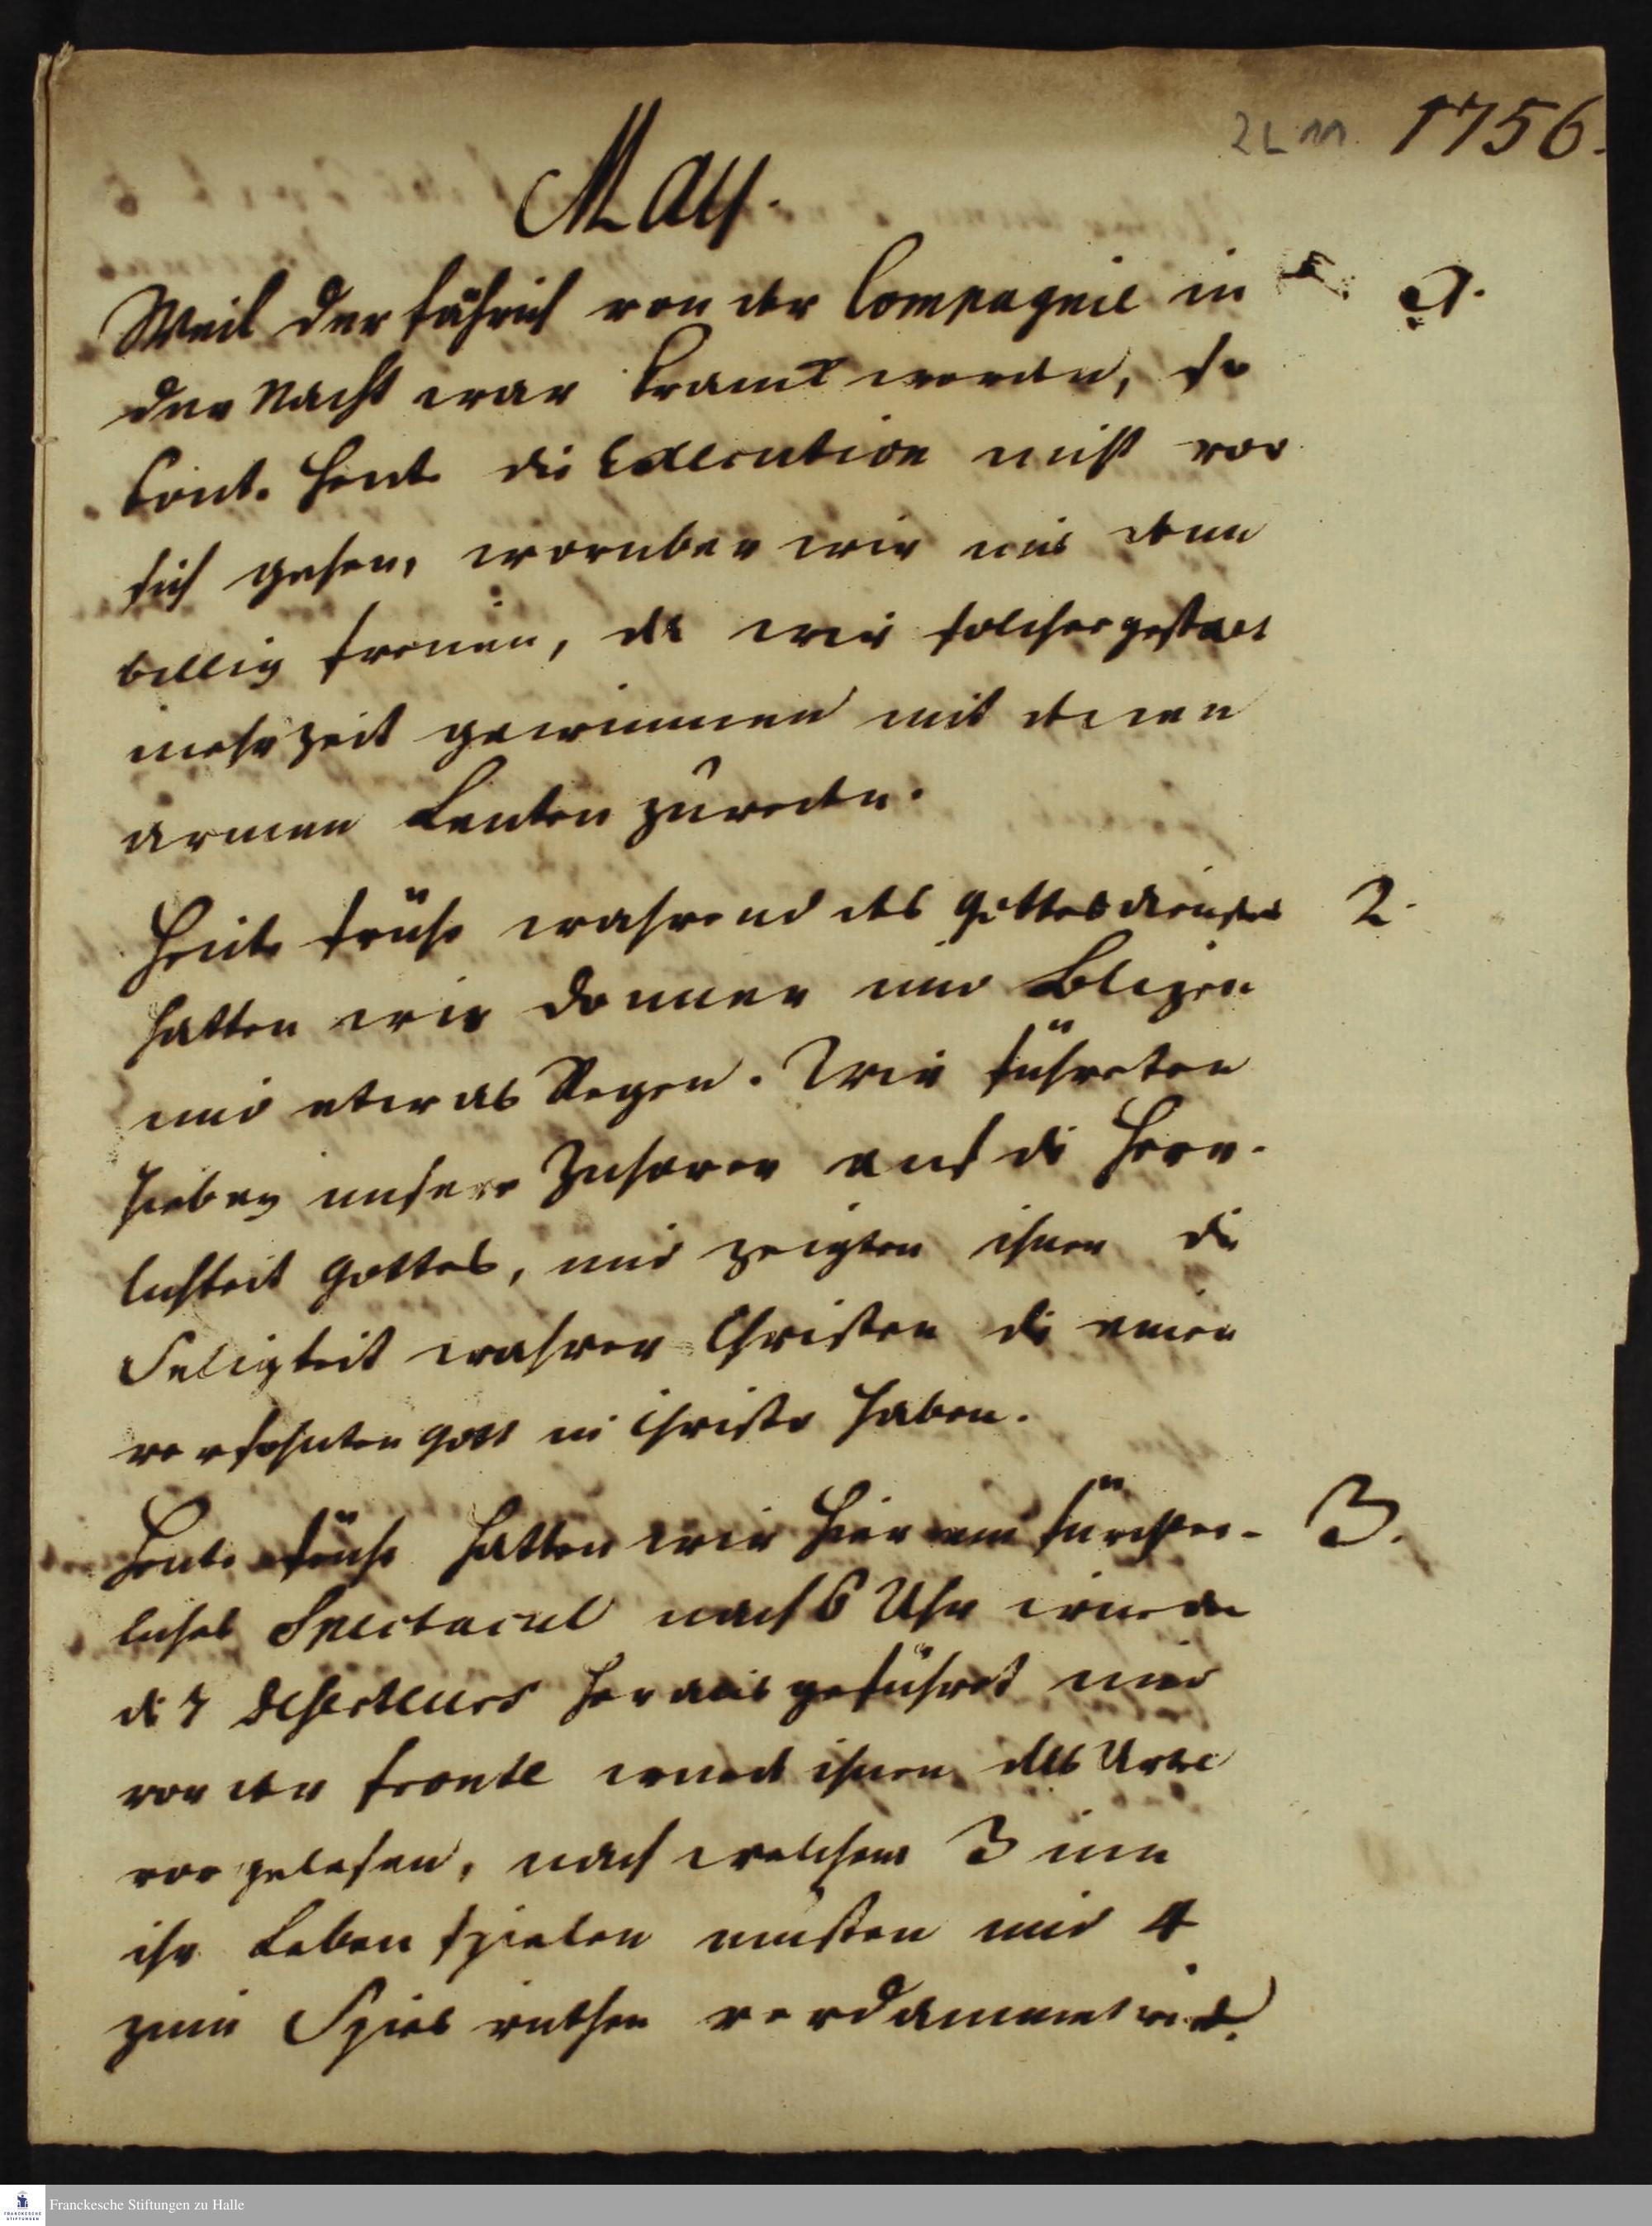 2L 11 1756.
May.
Weil der Fähnrich von der Compagnie in 1.
der Nacht war krank worden, so
kont. heute die Execution nicht vor
sich gehen, worüber wir uns denn
billig freuen, da wir solcher gestalt
mehr Zeit gewinnen mit denen
armen Leuten zu reden.
Heute frühe während des Gottesdienstes 2.
hatten wir Donner und Blizen
und etwas Regen. Wir führeten
hiebey unsere Zuhörer auf die Herr-
lichkeit Gottes, und zeigten ihnen die
Seligkeit wahrer Christen die einen
versöhnten Gott in Christo haben.
Heute frühe hatten wir hier ein fürchter- 3.
liches Spectacul nach 6 Uhr wurden
die 7 Deserteurs heraus geführet und
vor der Fronte wurde ihnen das Urtel
vor gelesen, nach welchem 3 um
ihr Leben spielen musten und 4
zum Spies ruthen verdammet
Franckesche Stiftungen zu Halle
FRANCKESCHE
STIFTUNGEN